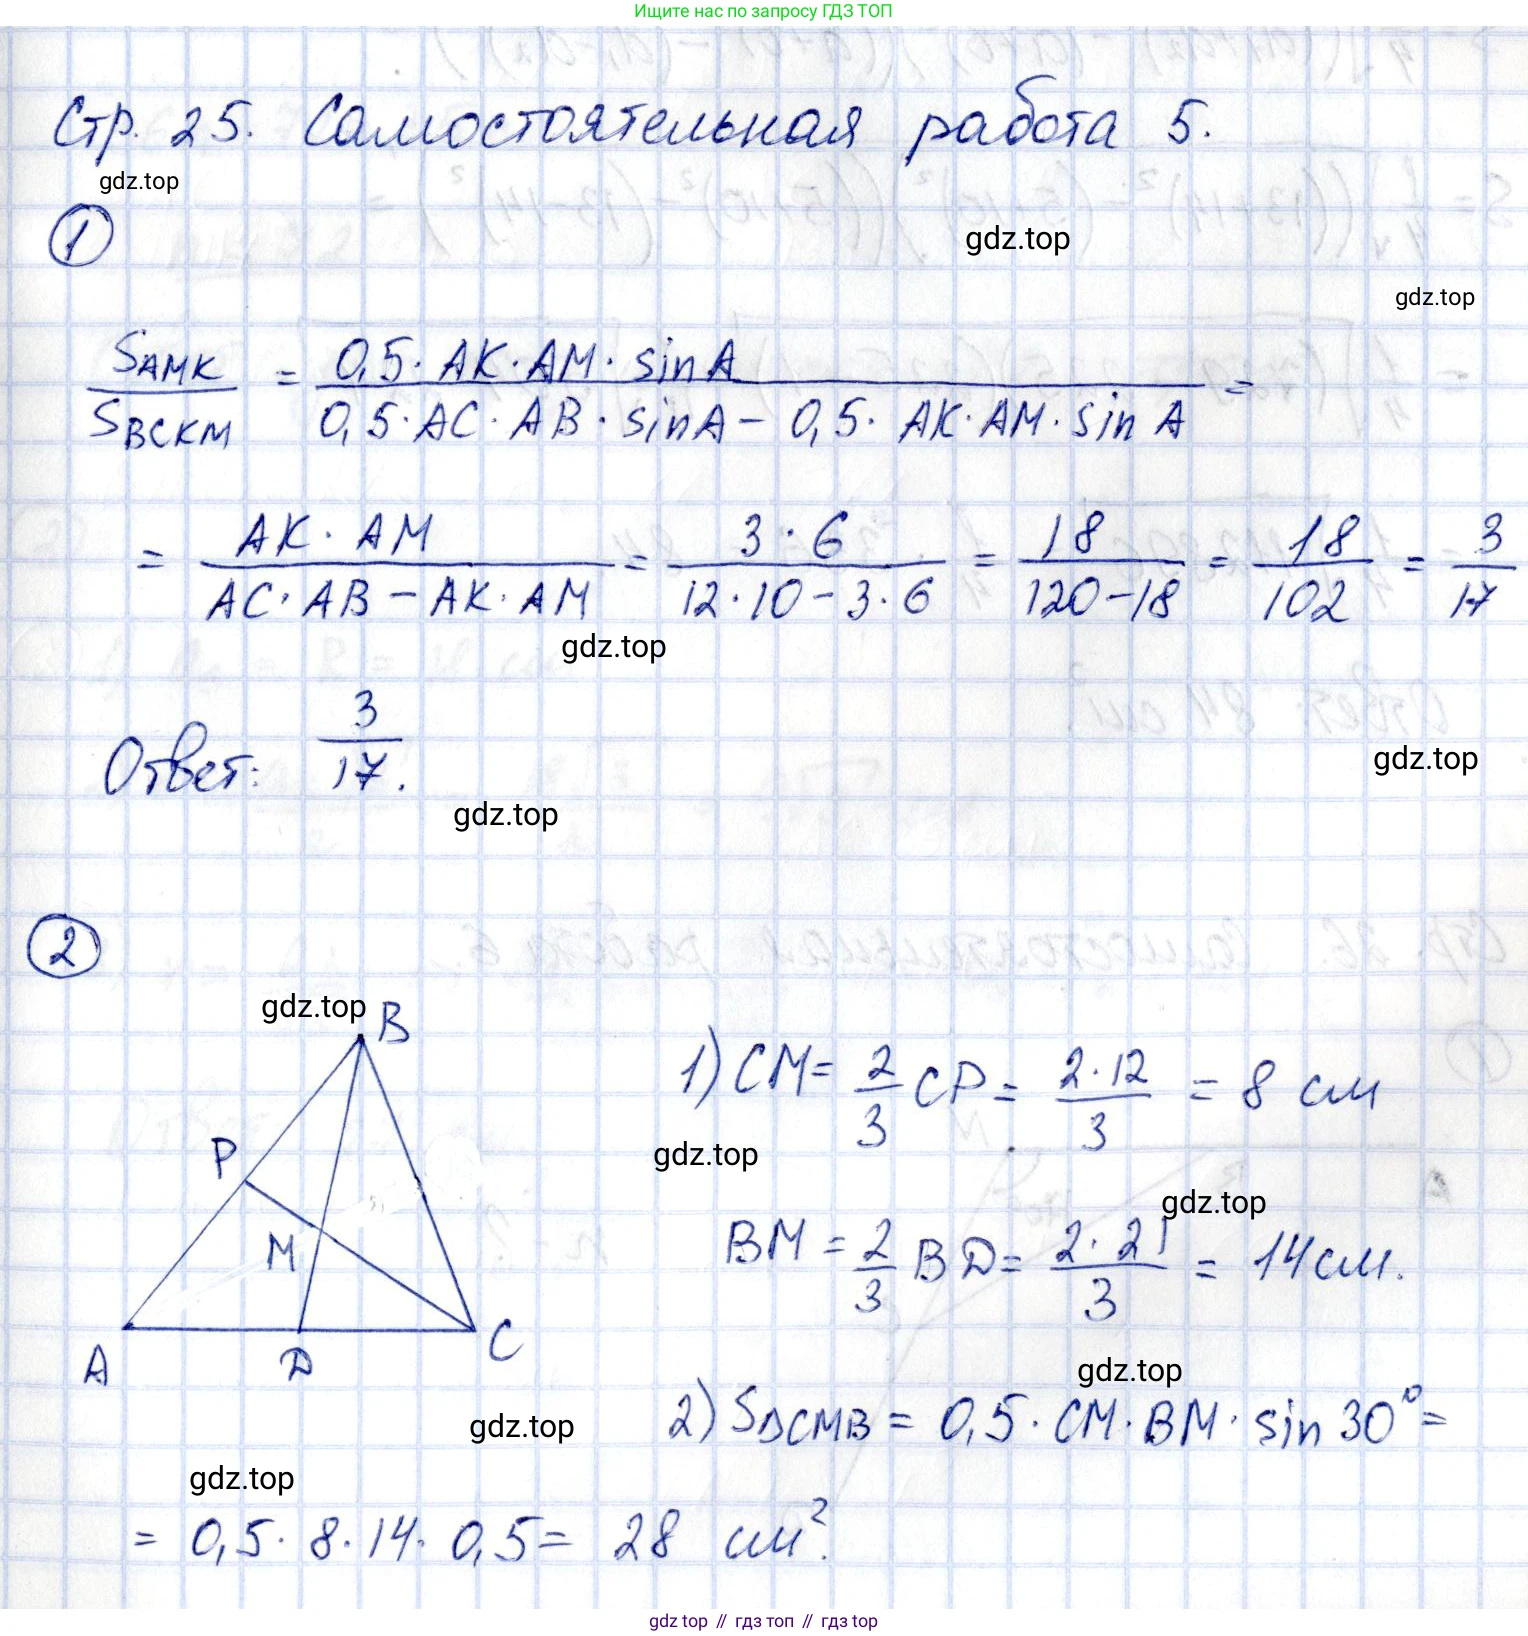 Ищите нас по запросу ГДЗ ТОП
Стр. 25. Самостоятельная работа 5.
gdz.top
1
gdz.top
gdz.top
S_AMK / S_BCKM = (0,5 · AK · AM · sin A) / (0,5 · AC · AB · sin A − 0,5 · AK · AM · sin A) =
= (AK · AM) / (AC · AB − AK · AM) = (3 · 6) / (12 · 10 − 3 · 6) = 18 / (120 − 18) = 18 / 102 = 3 / 17
gdz.top
Ответ: 3 / 17.
gdz.top
gdz.top
2
gdz.top
B
P
M
A
D
C
1) CM = 2/3 CP = (2 · 12) / 3 = 8 см
gdz.top
gdz.top
BM = 2/3 BD = (2 · 21) / 3 = 14 см.
gdz.top
2) S_ΔCMB = 0,5 · CM · BM · sin 30° =
gdz.top
gdz.top
= 0,5 · 8 · 14 · 0,5 = 28 см².
gdz.top // гдз топ // гдз top